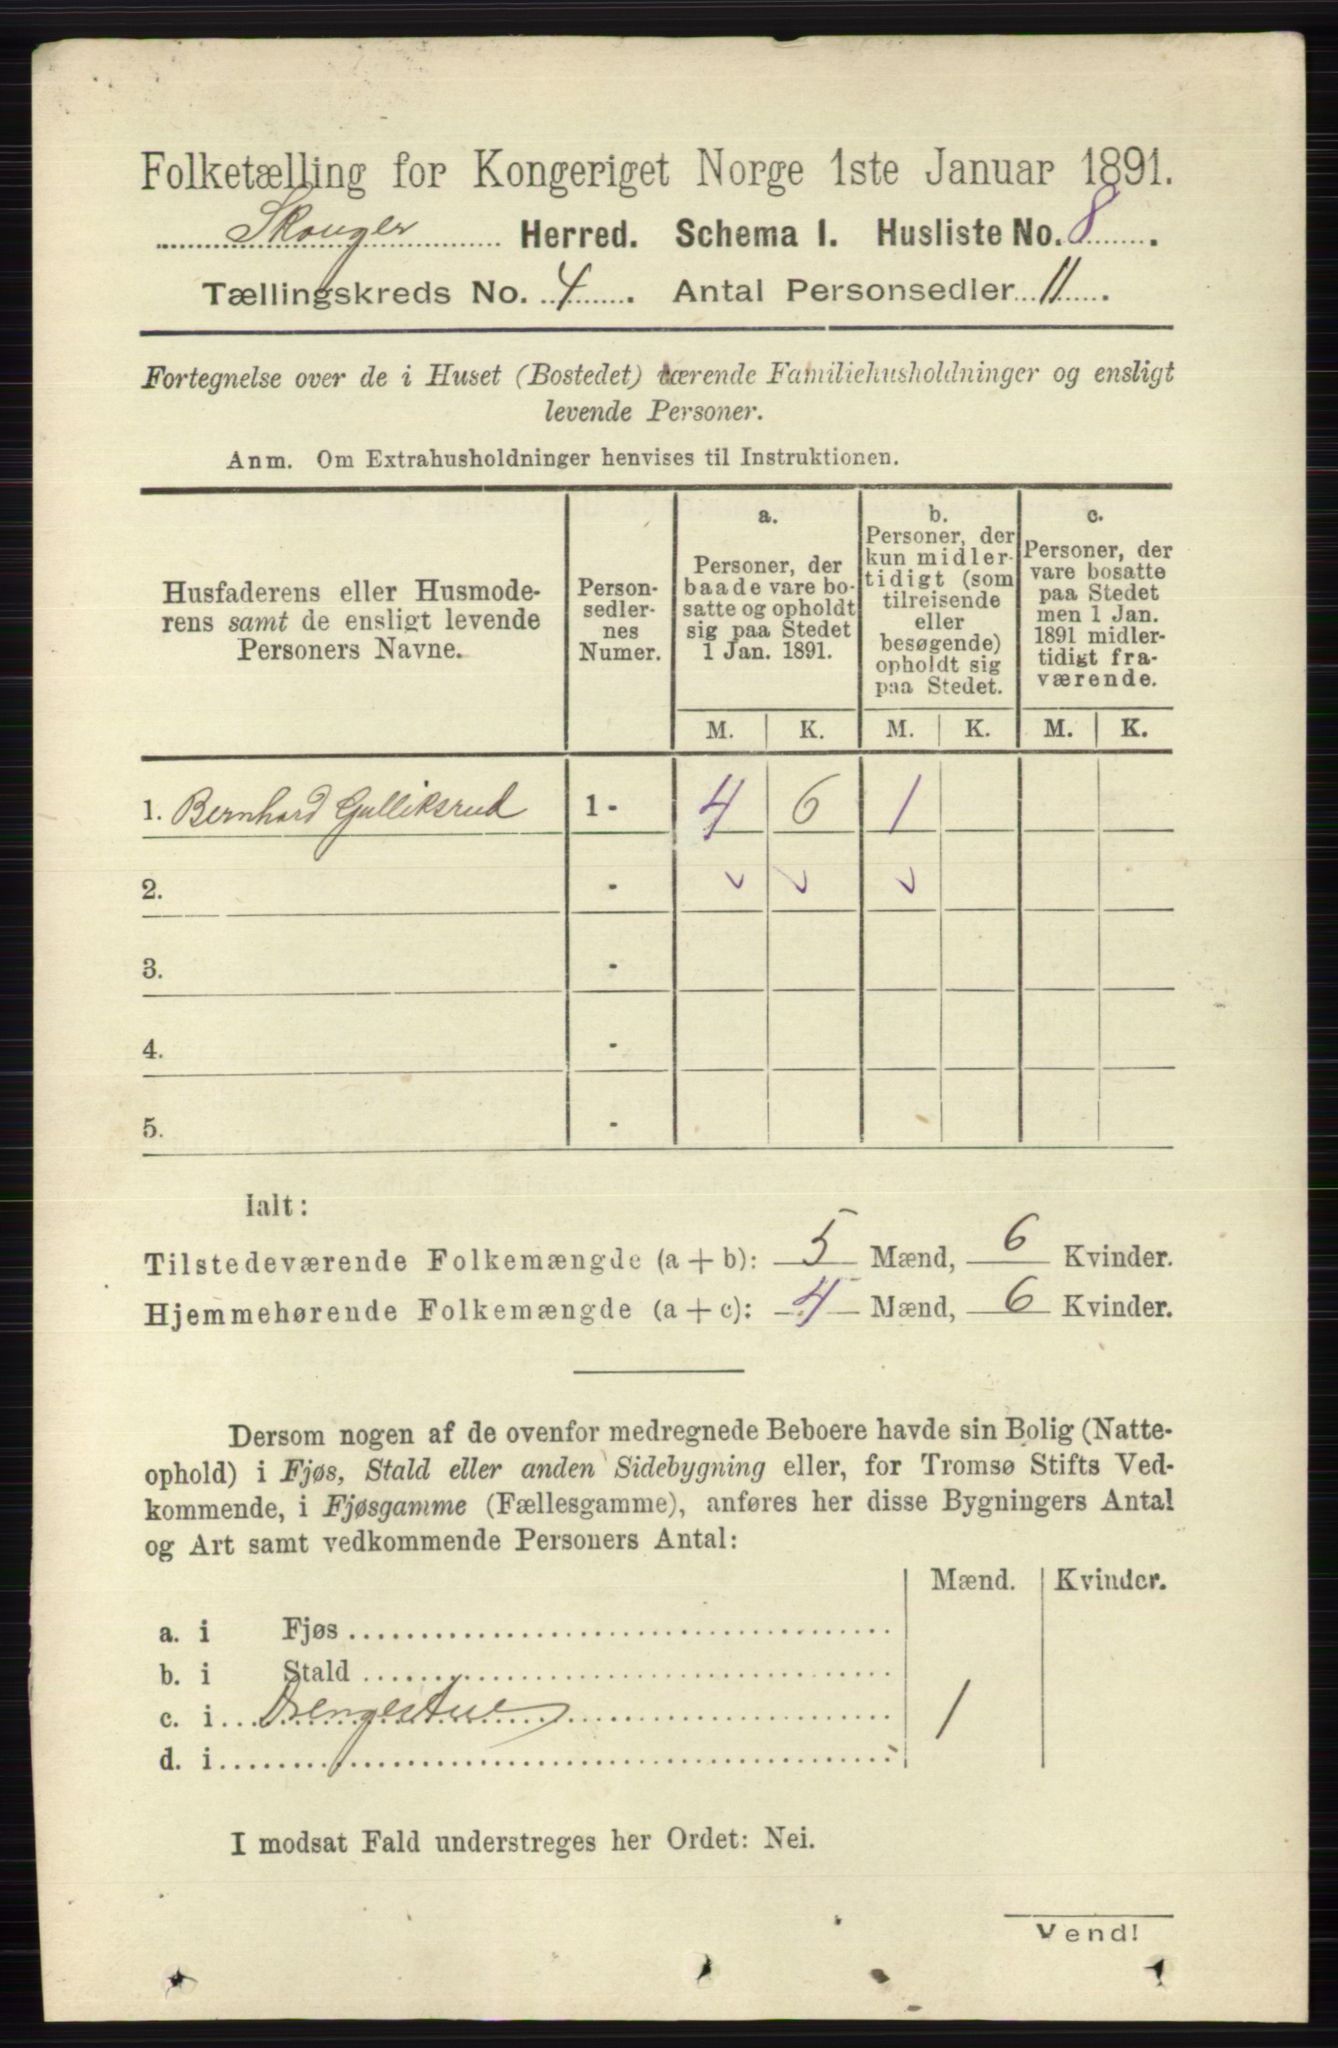 Folketælling for Kongeriget Norge 1ste Januar 1891.
Skouger Herred. Schema I. Husliste No. 8.
Tællingskreds No. 4. Antal Personsedler 11.
Fortegnelse over de i Huset (Bostedet) værende Familiehusholdninger og ensligt
levende Personer.
Anm. Om Extrahusholdninger henvises til Instruktionen.
Husfaderens eller Husmode-
rens samt de ensligt levende
Personers Navne.
Person-
sedler-
nes
Numer.
a.
Personer, der
baade vare bo-
satte og opholdt
sig paa Stedet
1 Jan. 1891.
b.
Personer, der
kun midler-
tidigt (som
tilreisende
eller
besøgende)
opholdt sig
paa Stedet.
c.
Personer, der
vare bosatte
paa Stedet
men 1 Jan.
1891 midler-
tidigt fra-
værende.
M. K. M. K. M. K.
1. Bernhard Gulliksrud 1 - 4 6 1
2. -
3. -
4. -
5. -
Ialt:
Tilstedeværende Folkemængde (a + b): 5 Mænd, 6 Kvinder.
Hjemmehørende Folkemængde (a + c): 4 Mænd, 6 Kvinder.
Dersom nogen af de ovenfor medregnede Beboere havde sin Bolig (Natte-
ophold) i Fjøs, Stald eller anden Sidebygning eller, for Tromsø Stifts Ved-
kommende, i Fjøsgamme (Fællesgamme), anføres her disse Bygningers Antal
og Art samt vedkommende Personers Antal:
Mænd. Kvinder.
a. i Fjøs
b. i Stald
c. i Drengestue 1
d. i
I modsat Fald understreges her Ordet: Nei.
Vend!